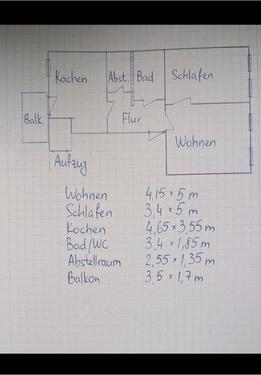 Kochen
Abst.
Bad
Schlafen
Balk
Flur
Wohnen
Aufzug
Wohnen 4,15 × 5 m
Schlafen 3,4 × 5 m
Kochen 4,65 × 3,55 m
Bad/WC 3,4 × 1,85 m
Abstellraum 2,55 × 1,35 m
Balkon 3,5 × 1,7 m